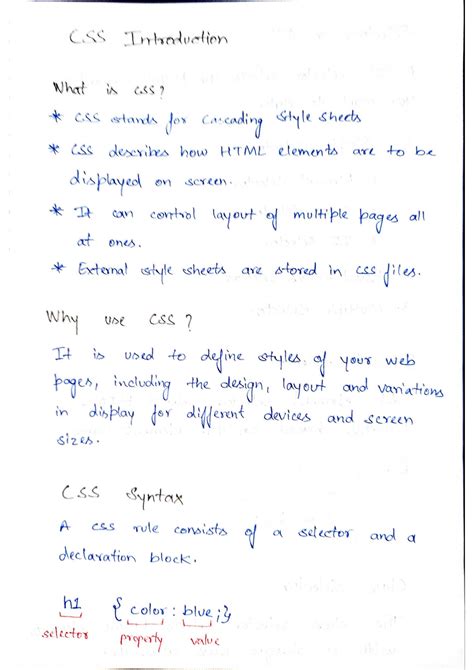 CSS Introduction
What is CSS?
* CSS stands for Cascading Style Sheets
* CSS describes how HTML elements are to be
displayed on screen.
* It can control layout of multiple pages all
at ones.
* External style sheets are stored in CSS files.
Why use CSS?
It is used to define styles of your web
pages, including the design, layout and variations
in display for different devices and screen
sizes.
CSS Syntax
A CSS rule consists of a selector and a
declaration block.
h1 {color : blue;}
selector property value